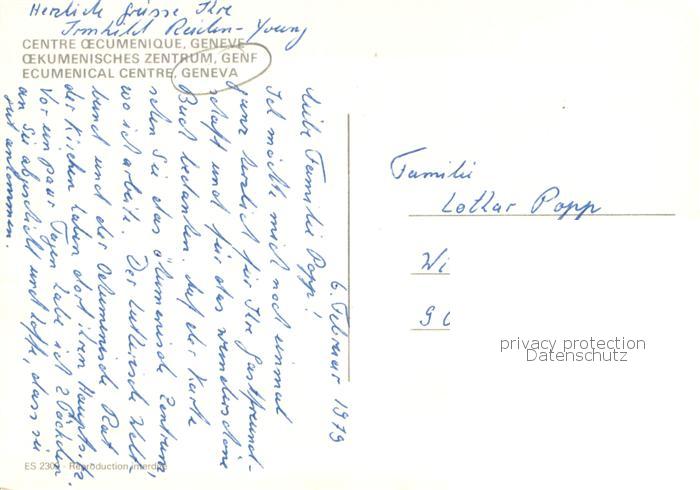 Herzlich grüsse Ihre
Irmhild
CENTRE ŒCUMENIQUE, GENEVE
ŒKUMENISCHES ZENTRUM, GENF
ECUMENICAL CENTRE, GENEVA
6. Februar 1979
Liebe Familie Popp!
Ich möchte mich noch einmal
ganz herzlich für Ihre Gastfreund-
schaft und für das wunderschöne
Buch bedanken. Auf der Karte
sehen Sie das ökumenische Zentrum,
wo ich arbeite. Der Lutherische Welt-
bund und der Oekumenische Rat
der Kirchen haben dort ihren
Vor ein paar Tagen habe ich 2 Päckchen
an Sie abgeschickt und hoffe, dass sie
gut ankommen.
Familie
Lothar Popp
Wi
privacy protection
Datenschutz
ES 230 - Reproduction interdi